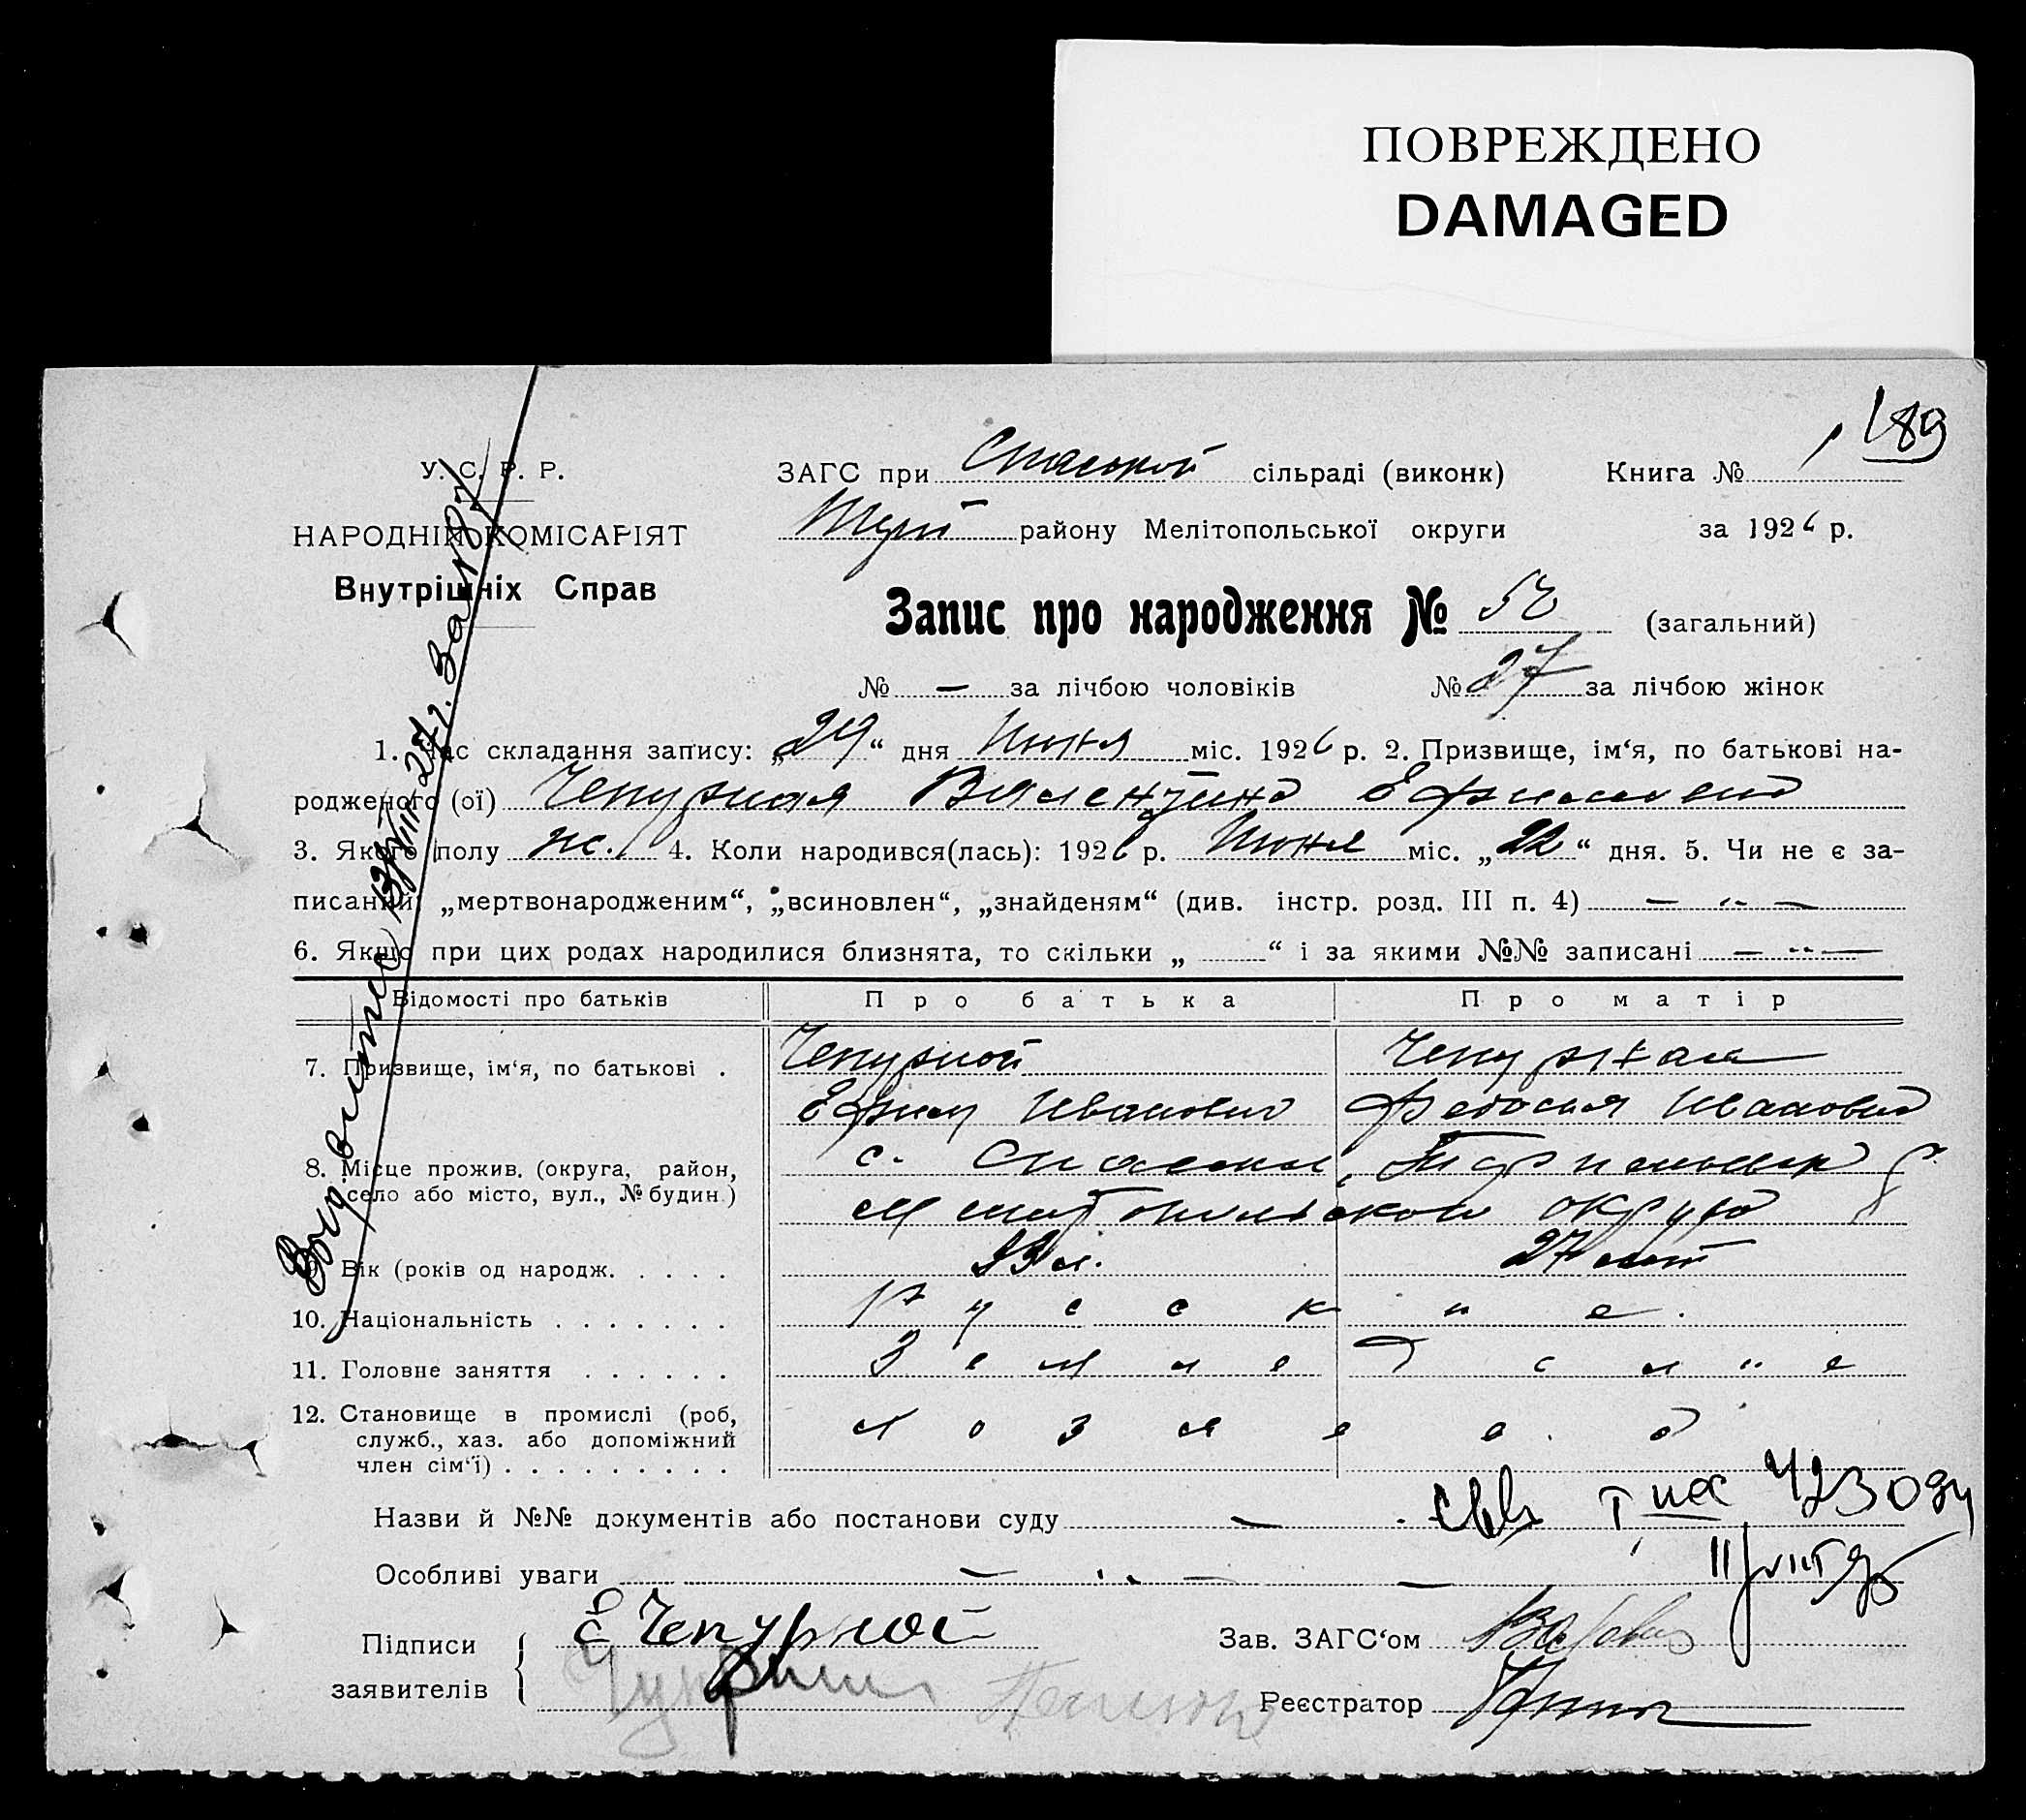 ПОВРЕЖДЕНО
DAMAGED
189
У. С. Р. Р.
НАРОДНІЙ КОМІСАРІЯТ
Внутрішніх Справ
ЗАГС при Спаской сільраді (виконк) Книга № 1
району Мелітопольської округи за 1926 р.
Запис про народження № 52 (загальний)
№ — за лічбою чоловіків № 27 за лічбою жінок
1. Час складання запису: „29“ дня Июня міс. 1926 р. 2. Призвище, ім‘я, по батькові на-
родженого (ої) Чепурная Валентина Ефимовна
3. Якого полу ж. 4. Коли народився(лась): 1926 р. Июня міс. „22“ дня. 5. Чи не є за-
писаний: „мертвонародженим“, „всиновлен“, „знайденям“ (див. інстр. розд. III п. 4) — „ —
6. Якщо при цих родах народилися близнята, то скільки „ “ і за якими №№ записані — „ —
Відомості про батьків Про батька Про матір
7. Призвище, ім‘я, по батькові . Чепурной Чепурная
Ефим Иванович Федосия Ивановна
8. Місце прожив. (округа, район, село або місто, вул., № будин.) с. Спаское,
Мелитопольской округа
9. Вік (років од народж. . . . . 33 л. 27 лет
10. Національність . . . . . . . Русские.
11. Головне заняття . . . . . . Земледелие
12. Становище в промислі (роб,
служб., хаз. або допоміжний
член сім‘ї) . . . . . . . . .
Назви й №№ документів або постанови суду —
Особливі уваги — „ — —
Підписи Е Чепурной Зав. ЗАГС‘ом
заявителів Реєстратор